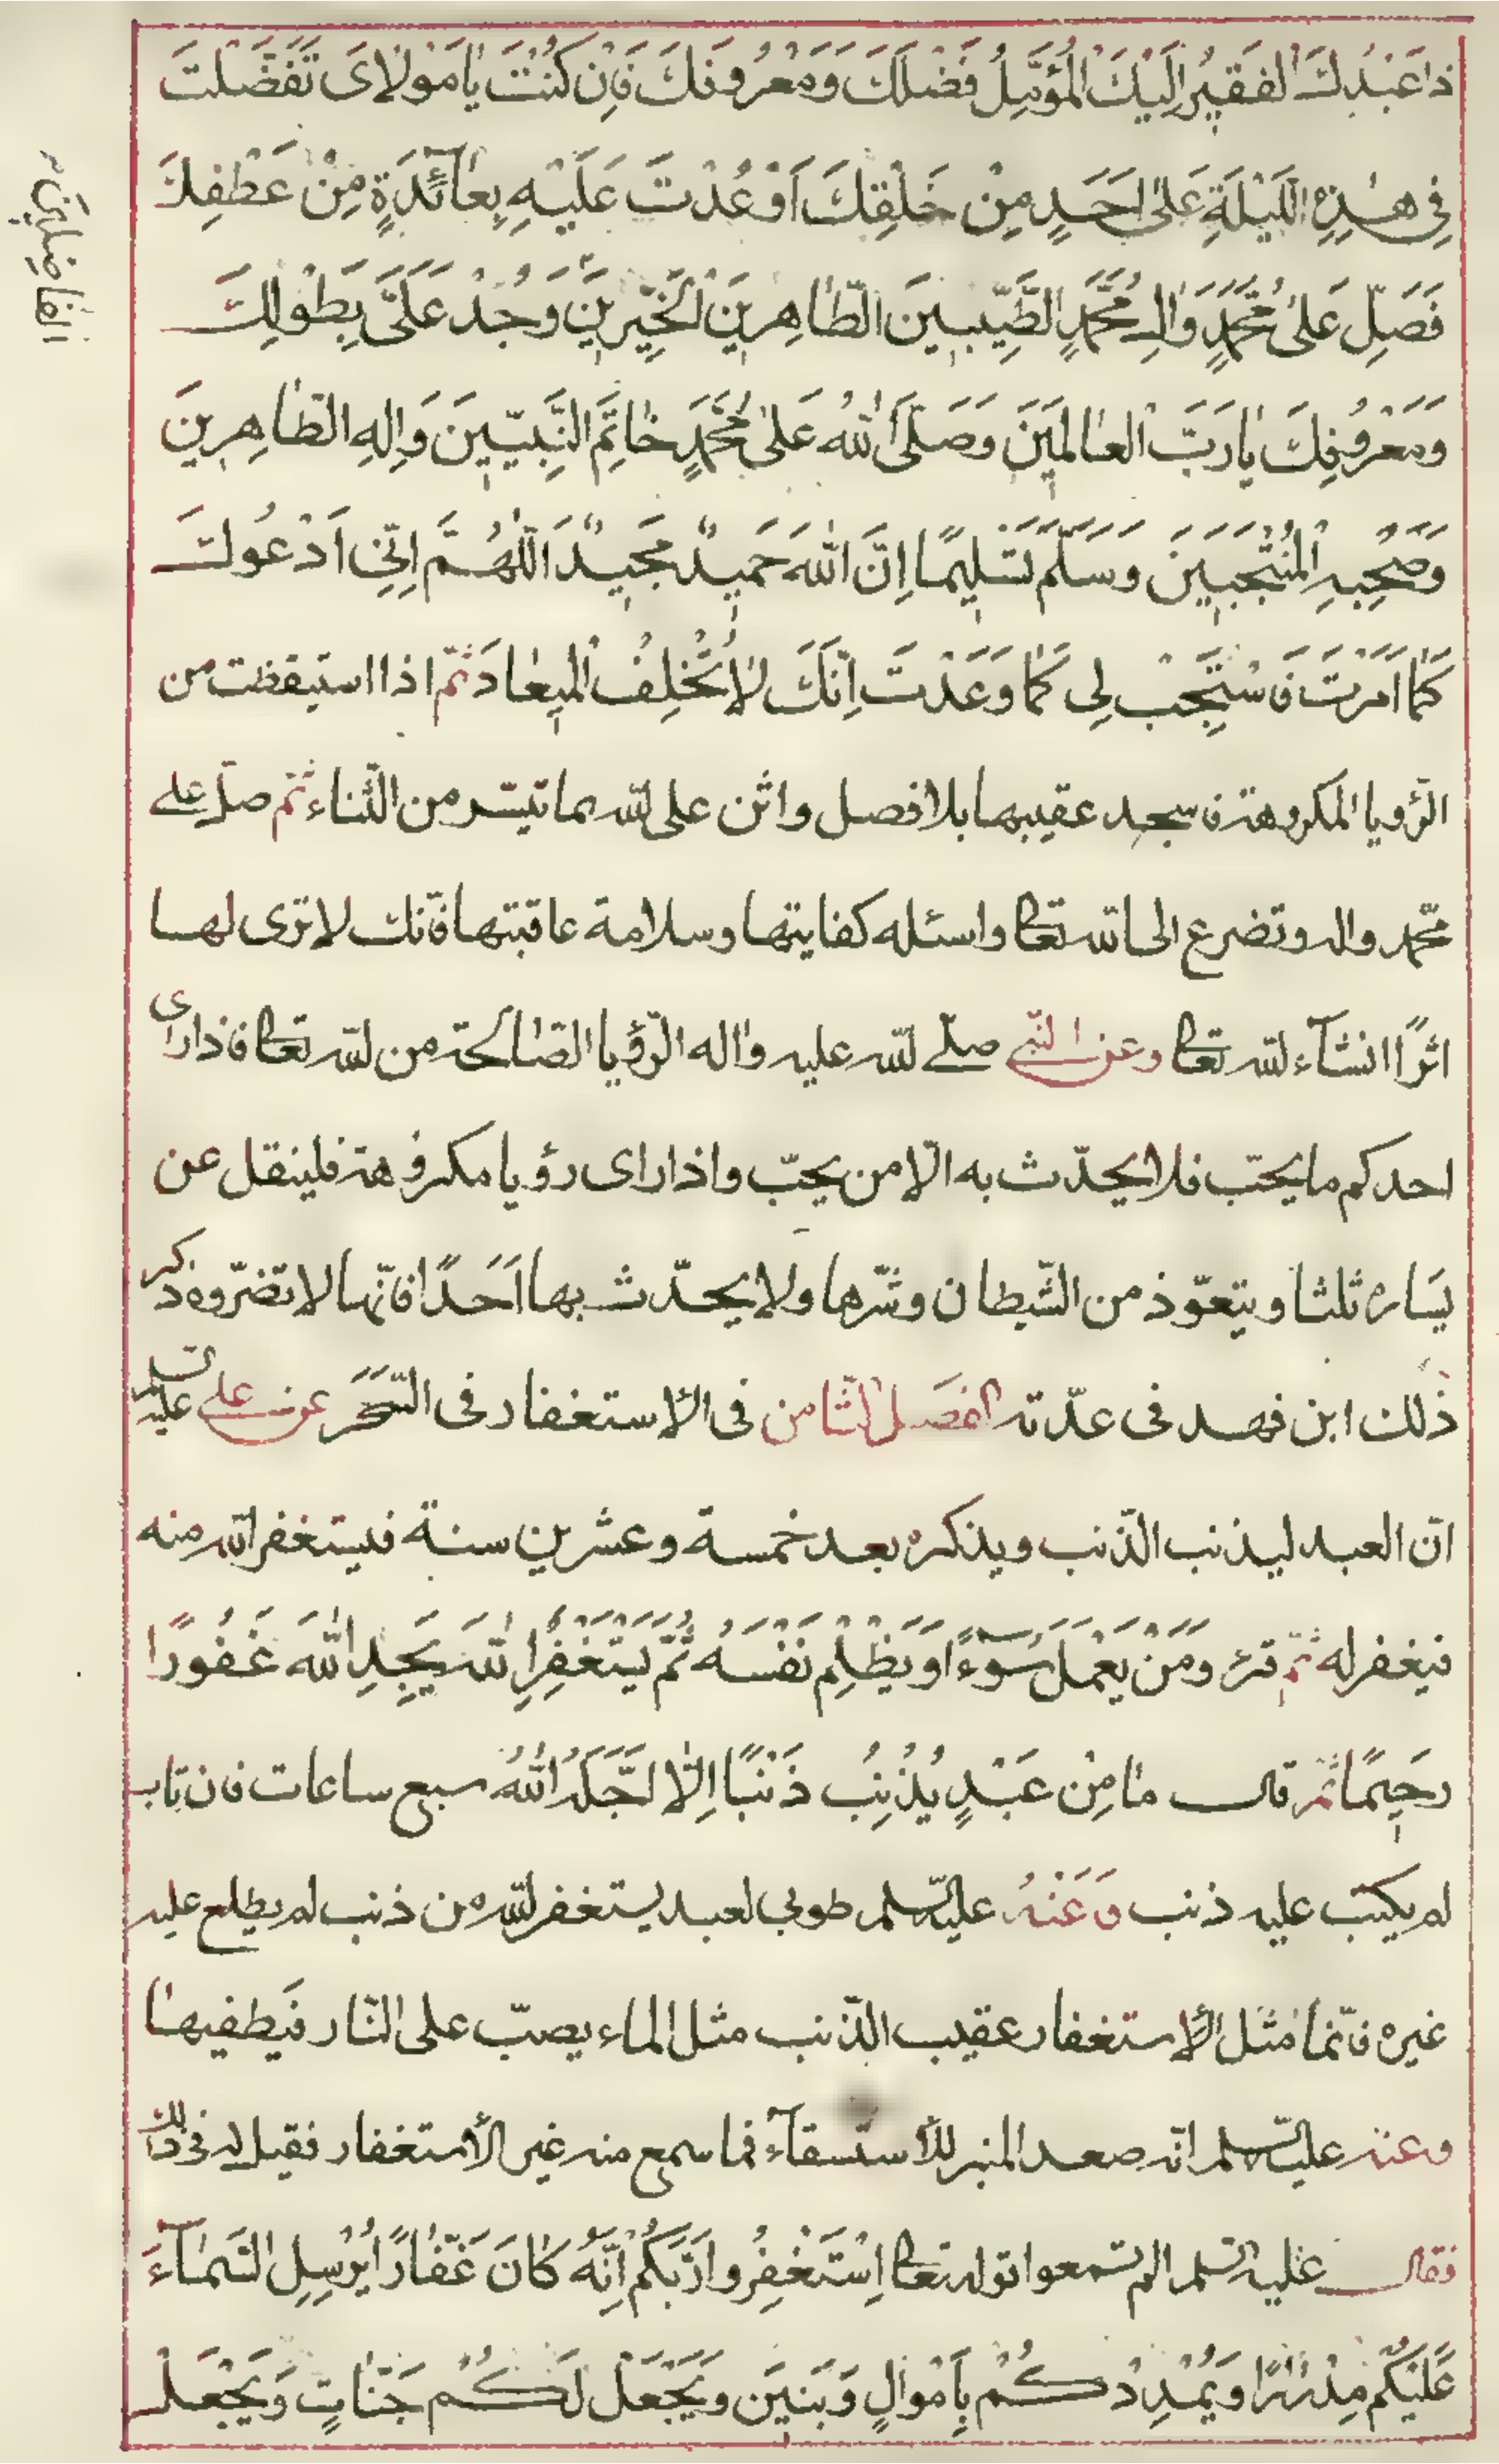 ذا عَبْدُكَ الفَقيرُ اِلَيْكَ الْمُؤَمِّلُ فَضْلَكَ وَمَعْرُوفَكَ فَاِنْ كُنْتَ يا مَوْلايَ تَفَضَّلْتَ
في هذِهِ اللَّيْلَةِ عَلى اَحَدٍ مِنْ خَلْقِكَ اَوْ عُدْتَ عَلَيْهِ بِعآئِدَةٍ مِنْ عَطْفِكَ
فَصَلِّ عَلى مُحَمَّدٍ وَالِ مُحَمَّدٍ الطَّيِّبينَ الطّاهِرينَ الْخَيِّرينَ وَجُدْ عَلَيَّ بِطَوْلِكَ
وَمَعْرُوفِكَ يا رَبَّ الْعالَمينَ وَصَلَّى اللهُ عَلى مُحَمَّدٍ خاتَمِ النَّبِيّينَ وَالِهِ الطّاهِرينَ
وَصَحْبِهِ الْمُنْتَجَبينَ وَسَلَّمَ تَسْليمًا اِنَّ اللهَ حَميدٌ مَجيدٌ اَللّهُمَّ اِنّي اَدْعُوكَ
كَما اَمَرْتَ فَاسْتَجِبْ لي كَما وَعَدْتَ اِنَّكَ لا تُخْلِفُ الْميعادَ ثمّ اذا استيقظت من
الرّؤيا المكروهة فاسجد عقيبها بلا فصل واثن على الله بما تيسّر من الثّناء ثمّ صلّ على
محمّد واله وتضرع الى الله تعالى واسئله كفايتها وسلامة عاقبتها فانّك لا ترى لها
اثرًا انشآء الله تعالى وعن النّبي صلّى الله عليه واله الرّؤيا الصّالحة من الله تعالى فاذا راى
احدكم ما يحبّ فلا يحدّث به الّا من يحبّ واذا راى رؤيا مكروهة فلينقل عن
يساره ثلثا ويتعوّذ من الشّيطان وشرّها ولا يحدّث بها اَحَدًا فانّها لا تضرّه وذكر
ذلك ابن فهد في عدّته الفصل الثّامن في الاستغفار في السَّحَر عن علي عليه السلم
انّ العبد ليذنب الذّنب ويذكره بعد خمسة وعشرين سنة فيستغفر الله منه
فيغفر له ثمّ قرء وَمَنْ يَعْمَلْ سُوءًا اَوْ يَظْلِمْ نَفْسَهُ ثُمَّ يَسْتَغْفِرِ اللهَ يَجِدِ اللهَ غَفُورًا
رَحيمًا ثم قال ما مِنْ عَبْدٍ يُذْنِبُ ذَنْبًا اِلّا اَجَّلَهُ اللهُ سبع ساعات فان تاب
لم يكتب عليه ذنب وَعَنْهُ عليه السّلم طوبى لعبد يستغفر الله من ذنب لم يطلع عليه
غيره فانّما مثل الاستغفار عقيب الذّنب مثل الماء يصبّ على النّار فيطفيها
وعنه عليه السّلم انّه صعد المنبر للاستسقآء فما سمع منه غير الاستغفار فقيل له في ذلك
فقال عليه السّلم الم تسمعوا قوله تعالى اِسْتَغْفِرُوا رَبَّكُمْ اِنَّهُ كانَ غَفّارًا يُرْسِلِ السَّمآءَ
عَلَيْكُمْ مِدْرارًا وَيُمْدِدْكُمْ بِاَمْوالٍ وَبَنينَ وَيَجْعَلْ لَكُمْ جَنّاتٍ وَيَجْعَلْ